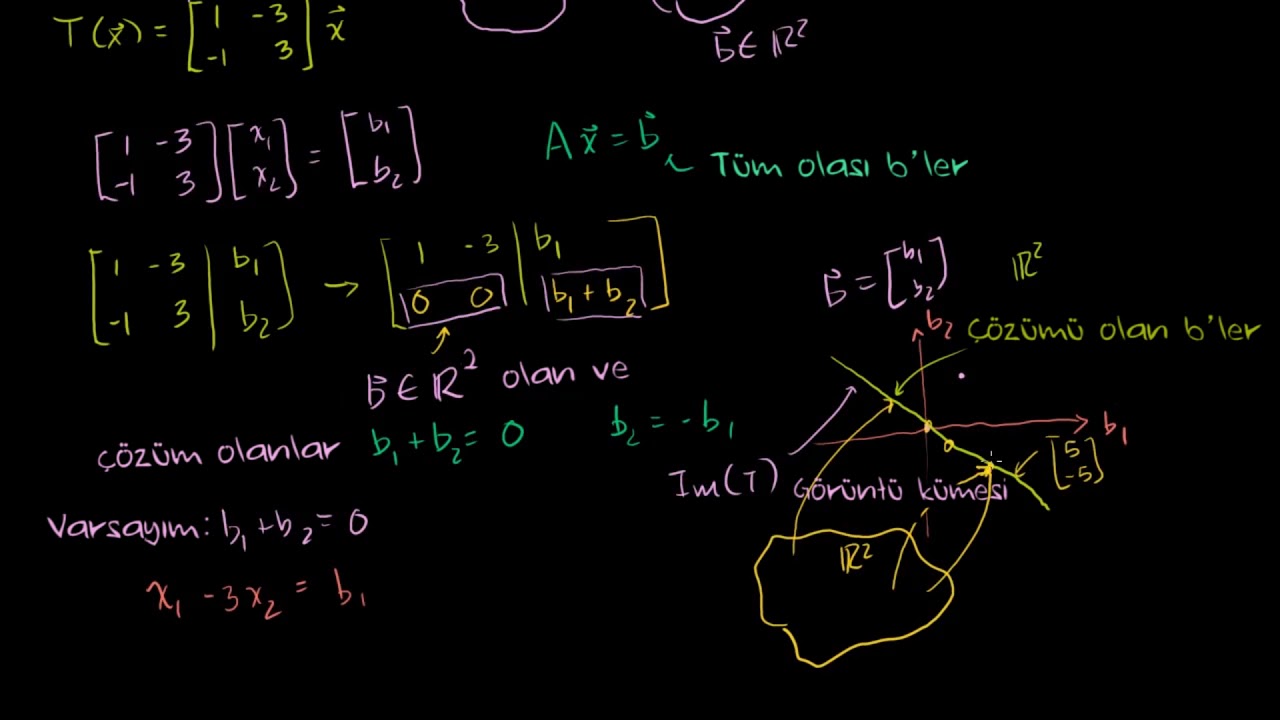 T(x⃗) = [1 -3; -1 3] x⃗
b⃗ ∈ ℝ²
[1 -3; -1 3] [x₁; x₂] = [b₁; b₂]
Ax⃗ = b⃗
Tüm olası b'ler
[1 -3 | b₁; -1 3 | b₂] → [1 -3 | b₁; 0 0 | b₁ + b₂]
b⃗ = [b₁; b₂]
ℝ²
b₂
çözümü olan b'ler
b⃗ ∈ ℝ² olan ve
çözüm olanlar b₁ + b₂ = 0
b₂ = -b₁
b₁
[5; -5]
Im(T) Görüntü kümesi
Varsayım: b₁ + b₂ = 0
ℝ²
x₁ - 3x₂ = b₁